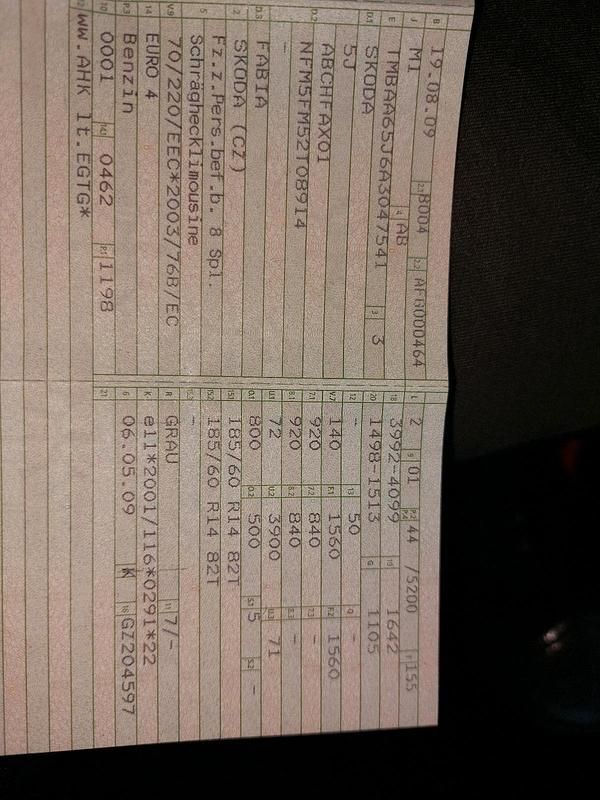 B 19.08.09 2.1 8004 2.2 AFG000464
J M1 4 AB
E TMBAA65J6A3047541 3 3
D.1 SKODA
5J
D.2 ABCHFAX01
NFM5FM52T08914
-
D.3 FABIA
2 SKODA (CZ)
5 Fz.z.Pers.bef.b. 8 Spl.
Schräghecklimousine
V.9 70/220/EEC*2003/76B/EC
14 EURO 4
P.3 Benzin
10 0001 14.1 0462 P.1 1198
22 ww.AHK lt.EGTG*
L 2 9 01 P.2 P.4 44 /5200 T 155
18 3992-4099 19 1642
20 1498-1513 G 1105
12 - 13 50 Q -
V.7 140 F.1 1560 F.2 1560
7.1 920 7.2 840 7.3 -
8.1 920 8.2 840 8.3 -
U.1 72 U.2 3900 U.3 71
O.1 800 O.2 500 S.1 5 S.2 -
15.1 185/60 R14 82T
15.2 185/60 R14 82T
15.3 -
R GRAU 11 7/-
K e11*2001/116*0291*22
6 06.05.09 17 K 16 GZ204597
21